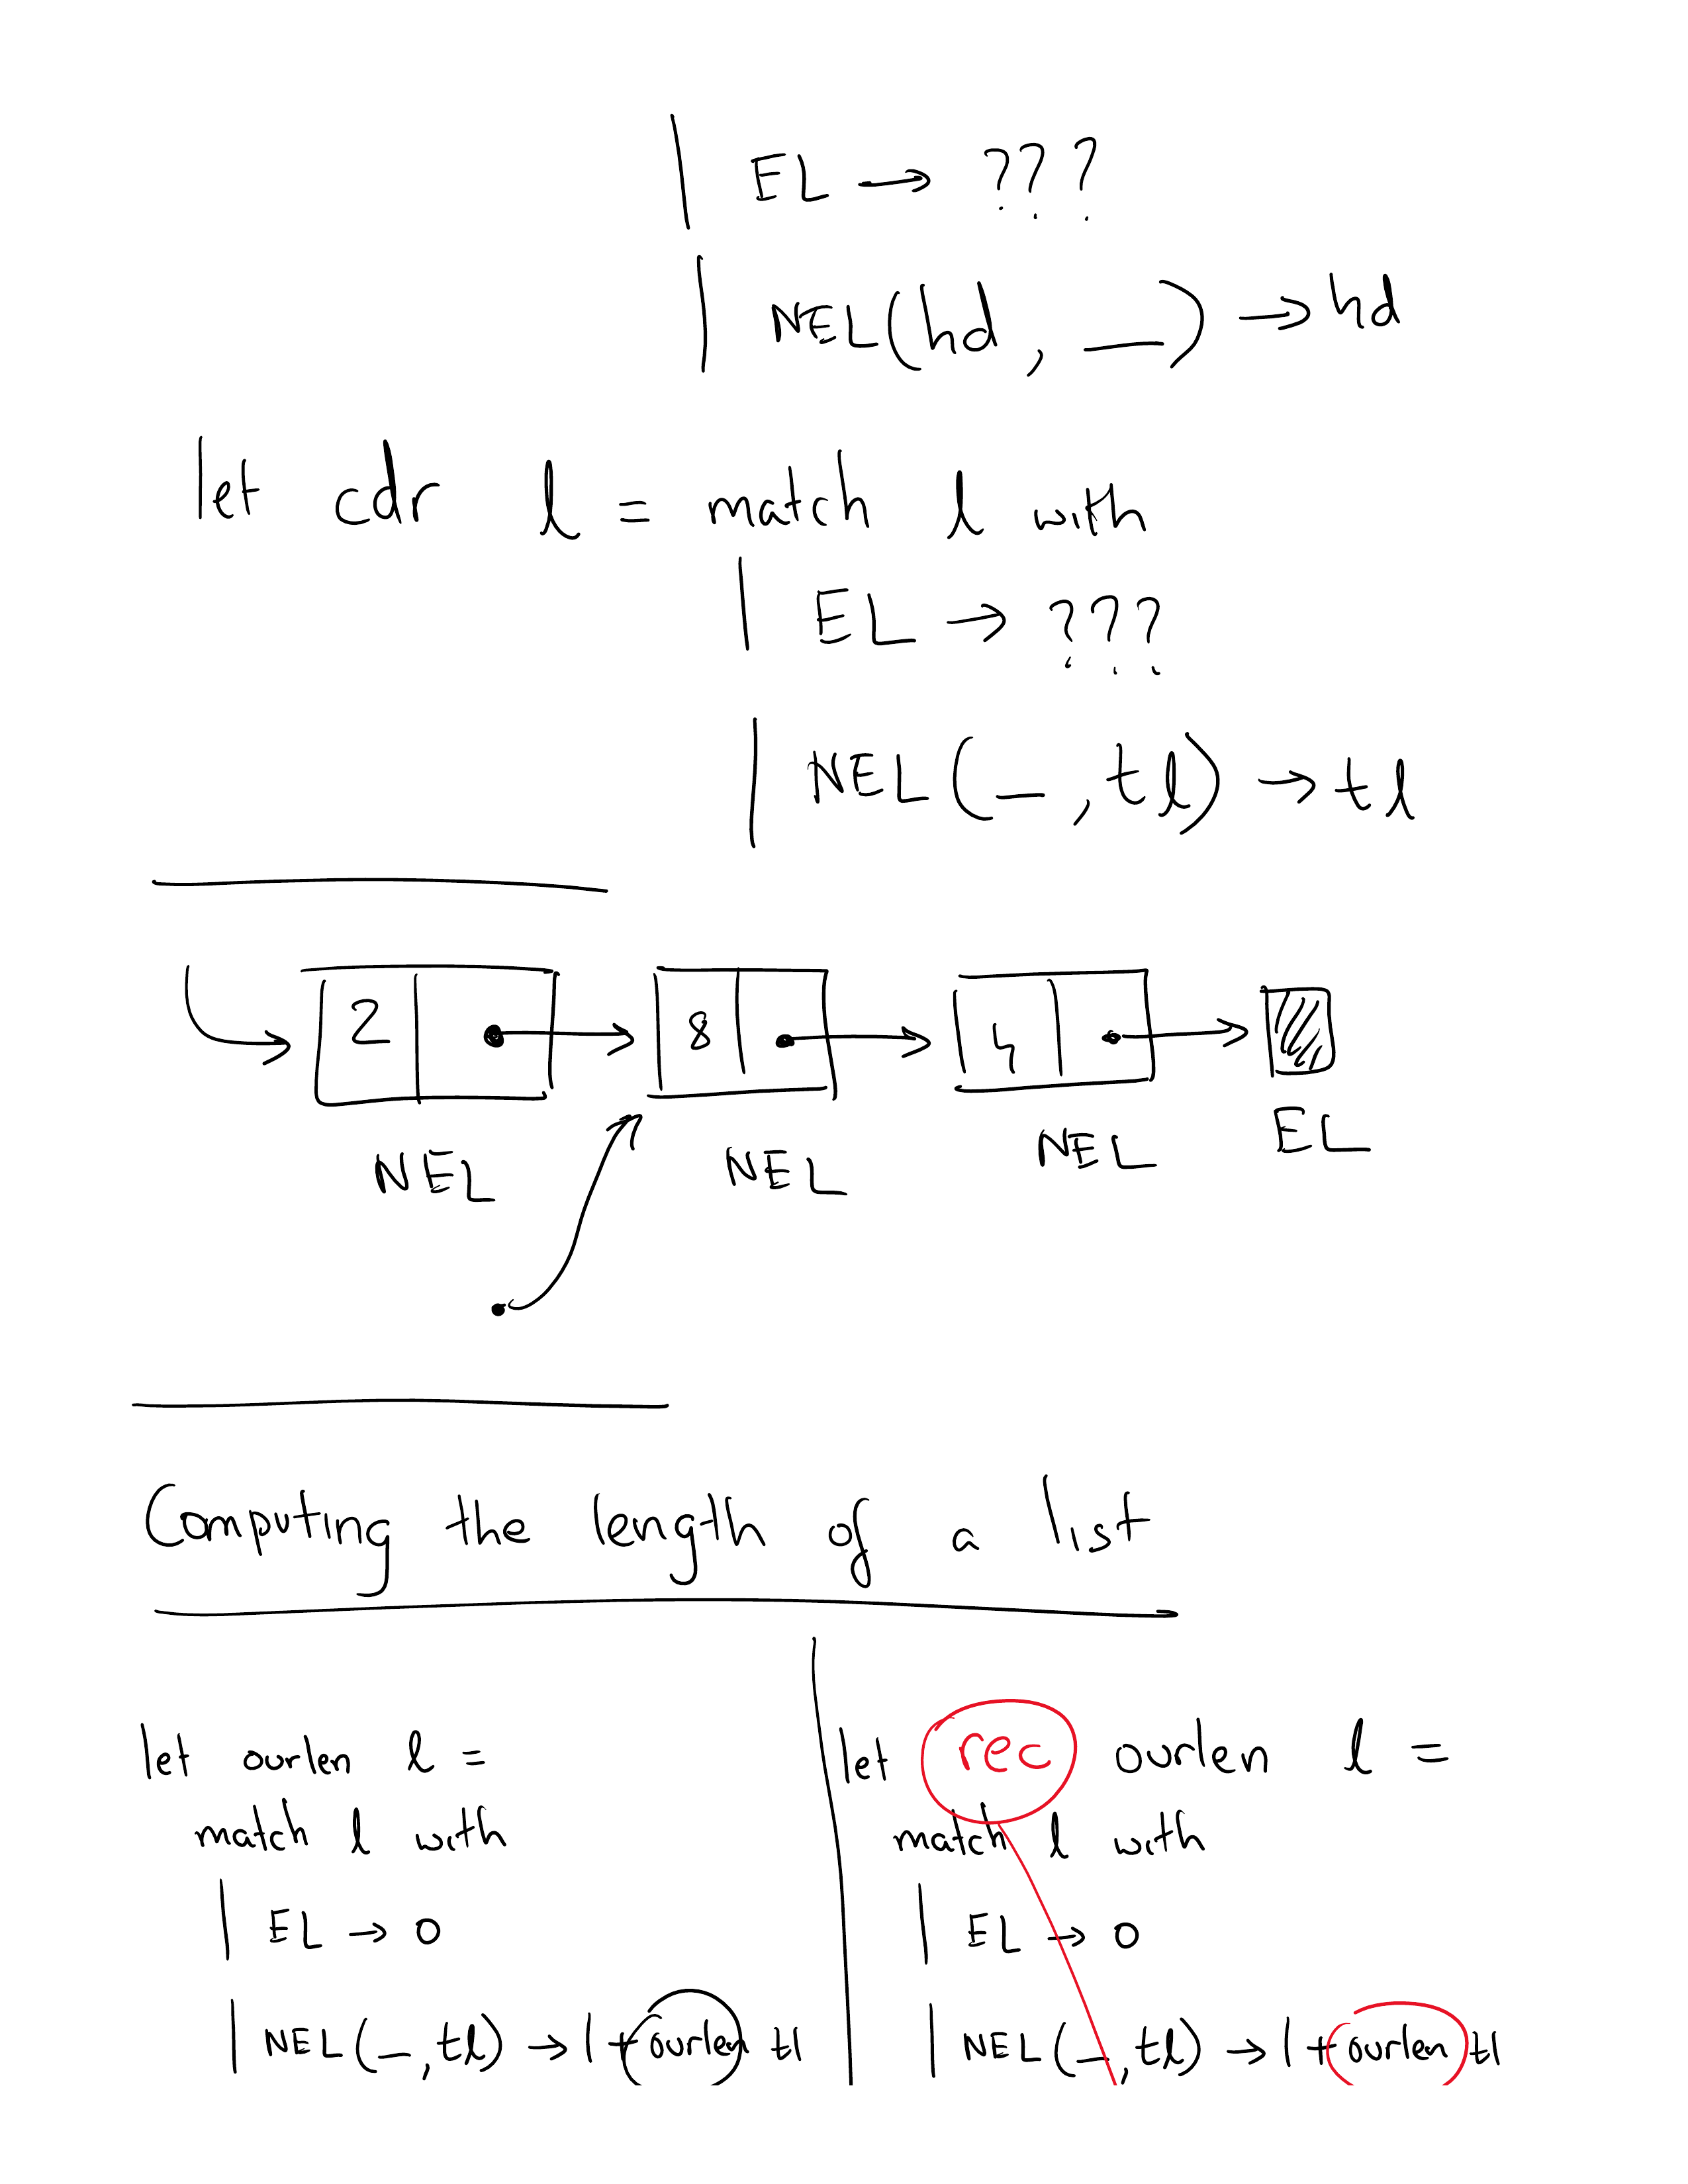 | EL → ???
| NEL(hd, _) → hd
let cdr l = match l with
| EL → ???
| NEL(_, tl) → tl
2 8 4
NEL NEL NEL EL
Computing the length of a list
let ourlen l =
match l with
| EL → 0
| NEL(_, tl) → 1 + ourlen tl
let rec ourlen l =
match l with
| EL → 0
| NEL(_, tl) → 1 + ourlen tl